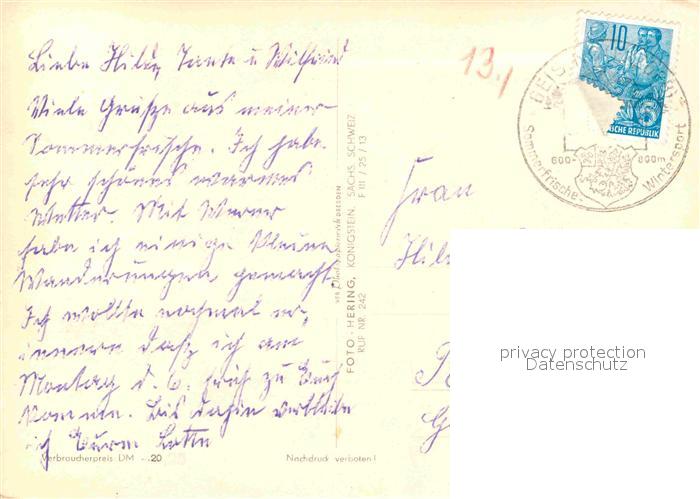 Liebe Hilde, Tante u Wilfried
Viele Grüsze aus meiner
Sommerfrische. Ich habe
sehr schönes warmes
Wetter. Mit Werner
habe ich einige kleine
Wanderungen gemacht.
Ich wollte nochmal er-
innern dasz ich am
Montag d. 6. früh zu Euch
komme. Bis dahin verbleibe
ich Eure Lotte
Verbraucherpreis DM -.20
Nachdruck verboten!
FOTO-HERING, KÖNIGSTEIN, SÄCHS. SCHWEIZ
RUF NR. 242 F III / 25 / 13
13./
10
SCHE REPUBLIK
GEIS
600- 800m
Sommerfrische-
Wintersport
Frau
Hil
privacy protection
Datenschutz